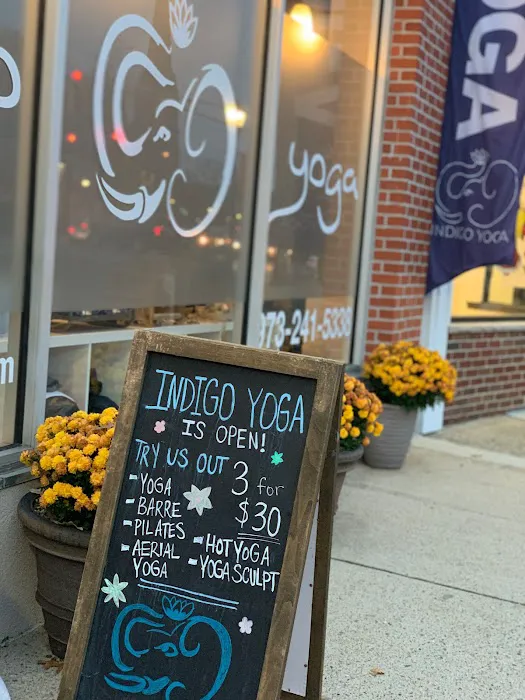 yoga
973-241-5338
m
YOGA
INDIGO YOGA
INDIGO YOGA
IS OPEN!
TRY US OUT
3 for
$30
- YOGA
- BARRE
- PILATES
- AERIAL
YOGA
- HOT YOGA
- YOGA SCULPT